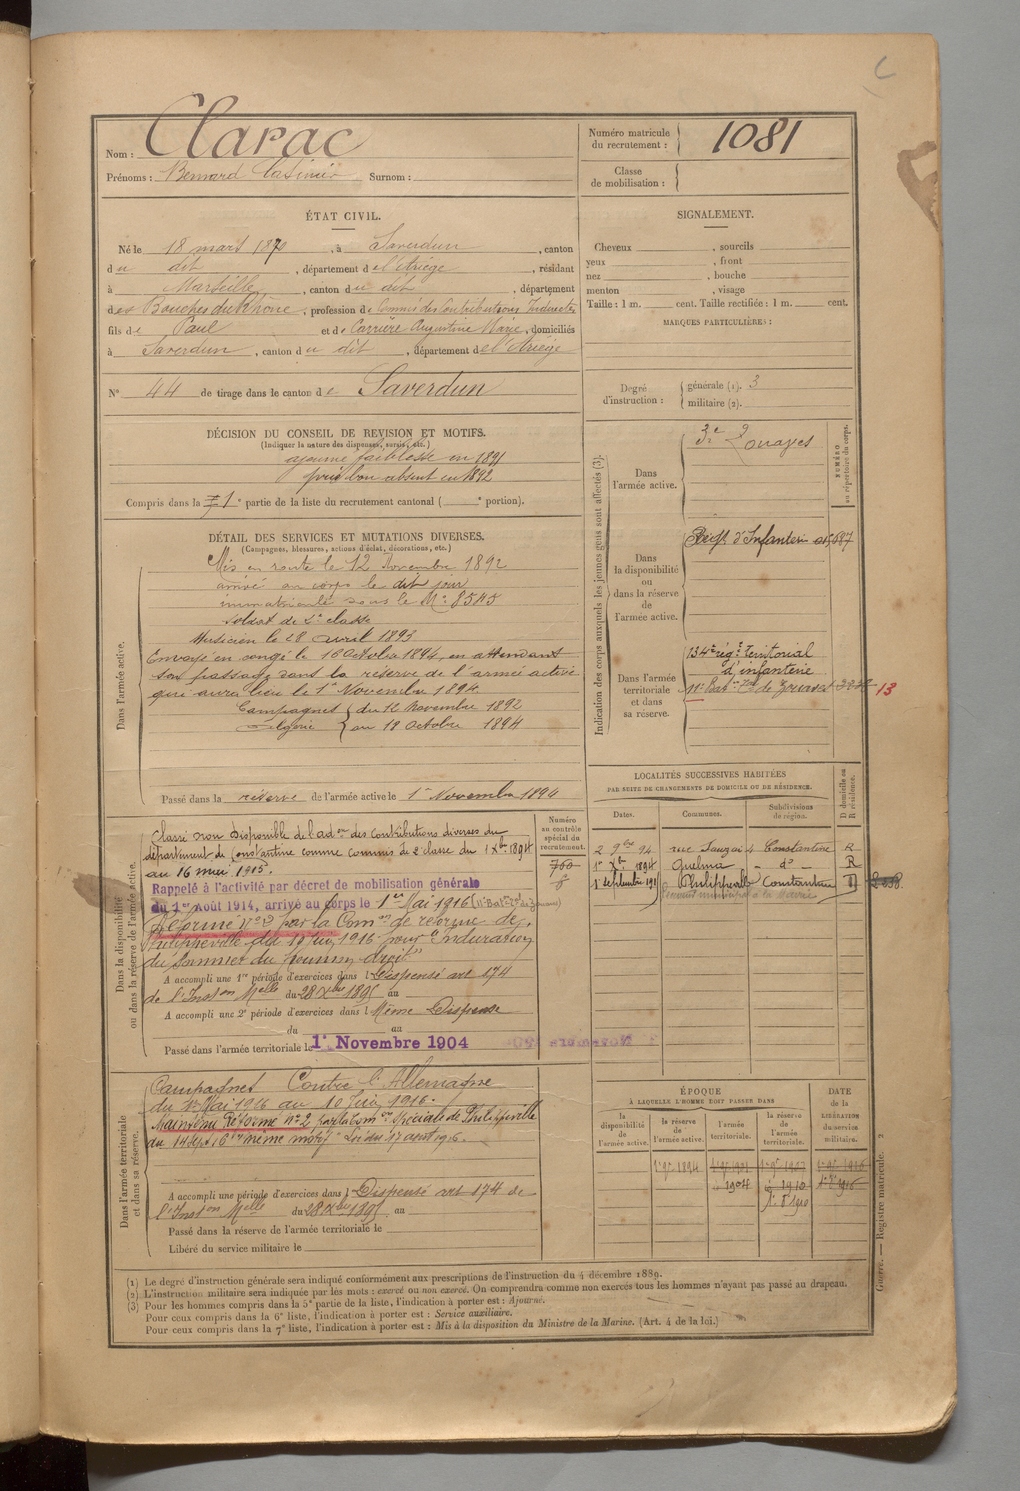 C
Nom : Clarac
Prénoms : Bernard Casimir Surnom :
Numéro matricule du recrutement : 1081
Classe de mobilisation :
ÉTAT CIVIL.
Né le 18 mars 1870, à Saverdun, canton
du dit, département de l'Ariège, résidant
à Marseille, canton du dit, département
des Bouches du Rhône, profession de Commis des Contributions Indirectes
fils de Paul et de Carrière Augustine Marie, domiciliés
à Saverdun, canton du dit, département de l'Ariège
N° 44 de tirage dans le canton de Saverdun
SIGNALEMENT.
Cheveux , sourcils
yeux , front
nez , bouche
menton , visage
Taille : 1 m. cent. Taille rectifiée : 1 m. cent.
MARQUES PARTICULIÈRES :
Degré d'instruction : générale (1). 3
militaire (2).
DÉCISION DU CONSEIL DE REVISION ET MOTIFS.
(Indiquer la nature des dispenses, sursis, etc.)
ajourné faiblesse en 1891
bon absent en 1892
Compris dans la 1e partie de la liste du recrutement cantonal ( e portion).
DÉTAIL DES SERVICES ET MUTATIONS DIVERSES.
(Campagnes, blessures, actions d'éclat, décorations, etc.)
Dans l'armée active.
Mis en route le 12 Novembre 1892
arrivé au corps le dit jour
immatriculé sous le N° 8545
soldat de 2e classe
Musicien le 28 avril 1893
Envoyé en congé le 18 Octobre 1894, en attendant
son passage dans la réserve de l'armée active
qui aura lieu le 1er Novembre 1894
Campagnes du 12 Novembre 1892
Algérie au 18 Octobre 1894
Passé dans la réserve de l'armée active le 1er Novembre 1894
Indication des corps auxquels les jeunes gens sont affectés (3).
NUMÉRO au répertoire du corps.
Dans l'armée active. 3e Zouaves
Dans la disponibilité ou dans la réserve de l'armée active. Régt d'Infanterie
Dans l'armée territoriale et dans sa réserve. 134e régt territorial
d'infanterie
11e Bat on Tal de Zouaves 13
LOCALITÉS SUCCESSIVES HABITÉES
PAR SUITE DE CHANGEMENTS DE DOMICILE OU DE RÉSIDENCE.
Dates. Communes. Subdivisions de région. D domicile ou R résidence.
2 9bre 94 rue Constantine R
1er Xbre 1894 Guelma - do - R
1er septembre 191 Philippeville Constantine D
Dans la disponibilité ou dans la réserve de l'armée active.
Numéro au contrôle spécial du recrutement.
700
8
Classé non disponible de l'ad on des Contributions diverses du
département de Constantine comme commis de 2e classe du 1 Xbre 1894
au 16 mai 1915.
Rappelé à l'activité par décret de mobilisation générale
du 1er Août 1914, arrivé au corps le 1er Mai 1916 (11e Bat on Tal de Zouaves)
Réformé n° 2 par la Com on de réforme de
Philippeville du 10 Juin 1916 pour "Induration
du sommet du poumon droit"
A accompli une 1re période d'exercices dans l Dispensé art 174
de l'Inst on Melle du 28 Xbre 1895 au
A accompli une 2e période d'exercices dans l Même Dispense
du au
Passé dans l'armée territoriale le 1er Novembre 1904
Dans l'armée territoriale et dans sa réserve.
Campagnes Contre l'Allemagne
du 1er Mai 1916 au 10 Juin 1916.
Maintenu Réformé N° 2 par la Com on Spéciale de Philippeville
du 14 Sept 16 même motif - Loi du 17 août 1915.
A accompli une période d'exercices dans l Dispensé art 174 de
l'Inst on Melle du 28 Xbre 1895 au
Passé dans la réserve de l'armée territoriale le
Libéré du service militaire le
ÉPOQUE
À LAQUELLE L'HOMME DOIT PASSER DANS
la disponibilité de l'armée active. la réserve de l'armée active. l'armée territoriale. la réserve de l'armée territoriale.
DATE de la LIBÉRATION du service militaire.
1er 9bre 1894
1904
1910
Guerre. — Registre matricule. 2
(1) Le degré d'instruction générale sera indiqué conformément aux prescriptions de l'instruction du 4 décembre 1889.
(2) L'instruction militaire sera indiquée par les mots : exercé ou non exercé. On comprendra comme non exercés tous les hommes n'ayant pas passé au drapeau.
(3) Pour les hommes compris dans la 5e partie de la liste, l'indication à porter est : Ajourné.
Pour ceux compris dans la 6e liste, l'indication à porter est : Service auxiliaire.
Pour ceux compris dans la 7e liste, l'indication à porter est : Mis à la disposition du Ministre de la Marine. (Art. 4 de la loi.)